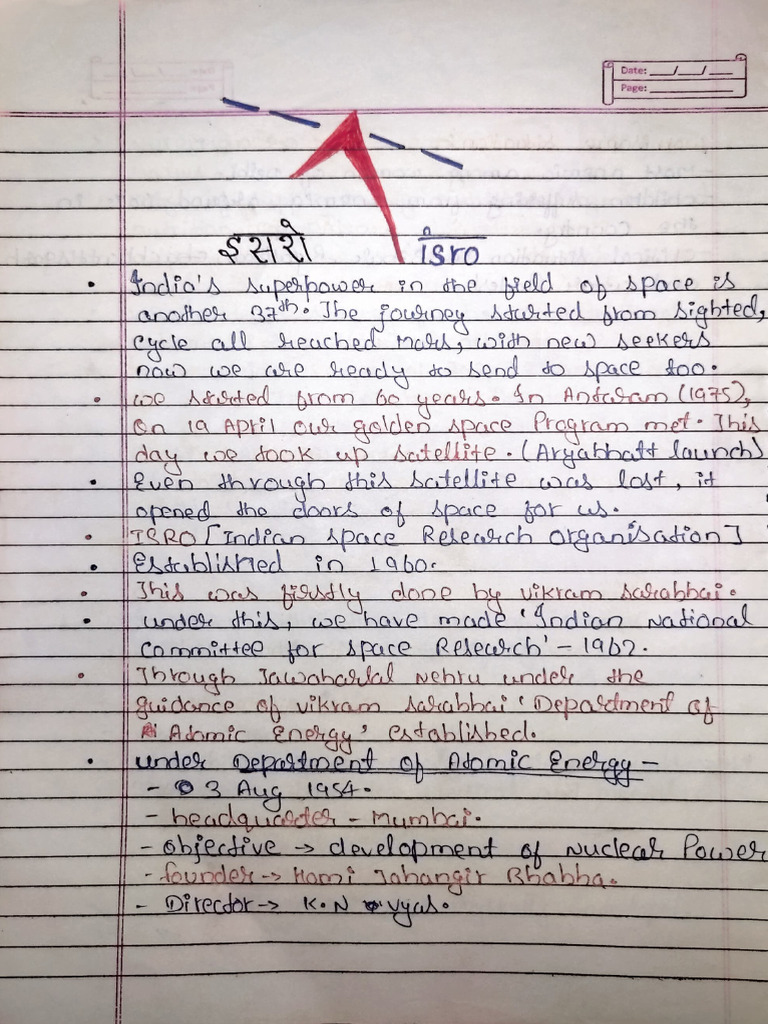 Date: __/__/__
Page: ________
इसरो isro
• India's superpower in the field of space is
another 37th. The journey started from sighted,
cycle all reached Mars, with new seekers
now we are ready to send to space too.
• we started from 60 years. In Antaram (1975),
On 19 April our golden space Program met. This
day we took up satellite. (Aryabhatt launch)
• Even through this satellite was lost, it
opened the doors of space for us.
• ISRO [Indian space Research organisation]
• Established in 1960.
• This was firstly done by vikram sarabhai.
• under this, we have made 'Indian National
committee for space Research' - 1962.
• Through Jawaharlal Nehru under the
guidance of vikram sarabhai 'Department of
Atomic Energy' established.
• under Department of Atomic Energy -
- 3 Aug 1954.
- headquarter - Mumbai.
- objective → development of Nuclear Power
- founder → Homi Jahangir Bhabha.
- Director → K.N vyas.